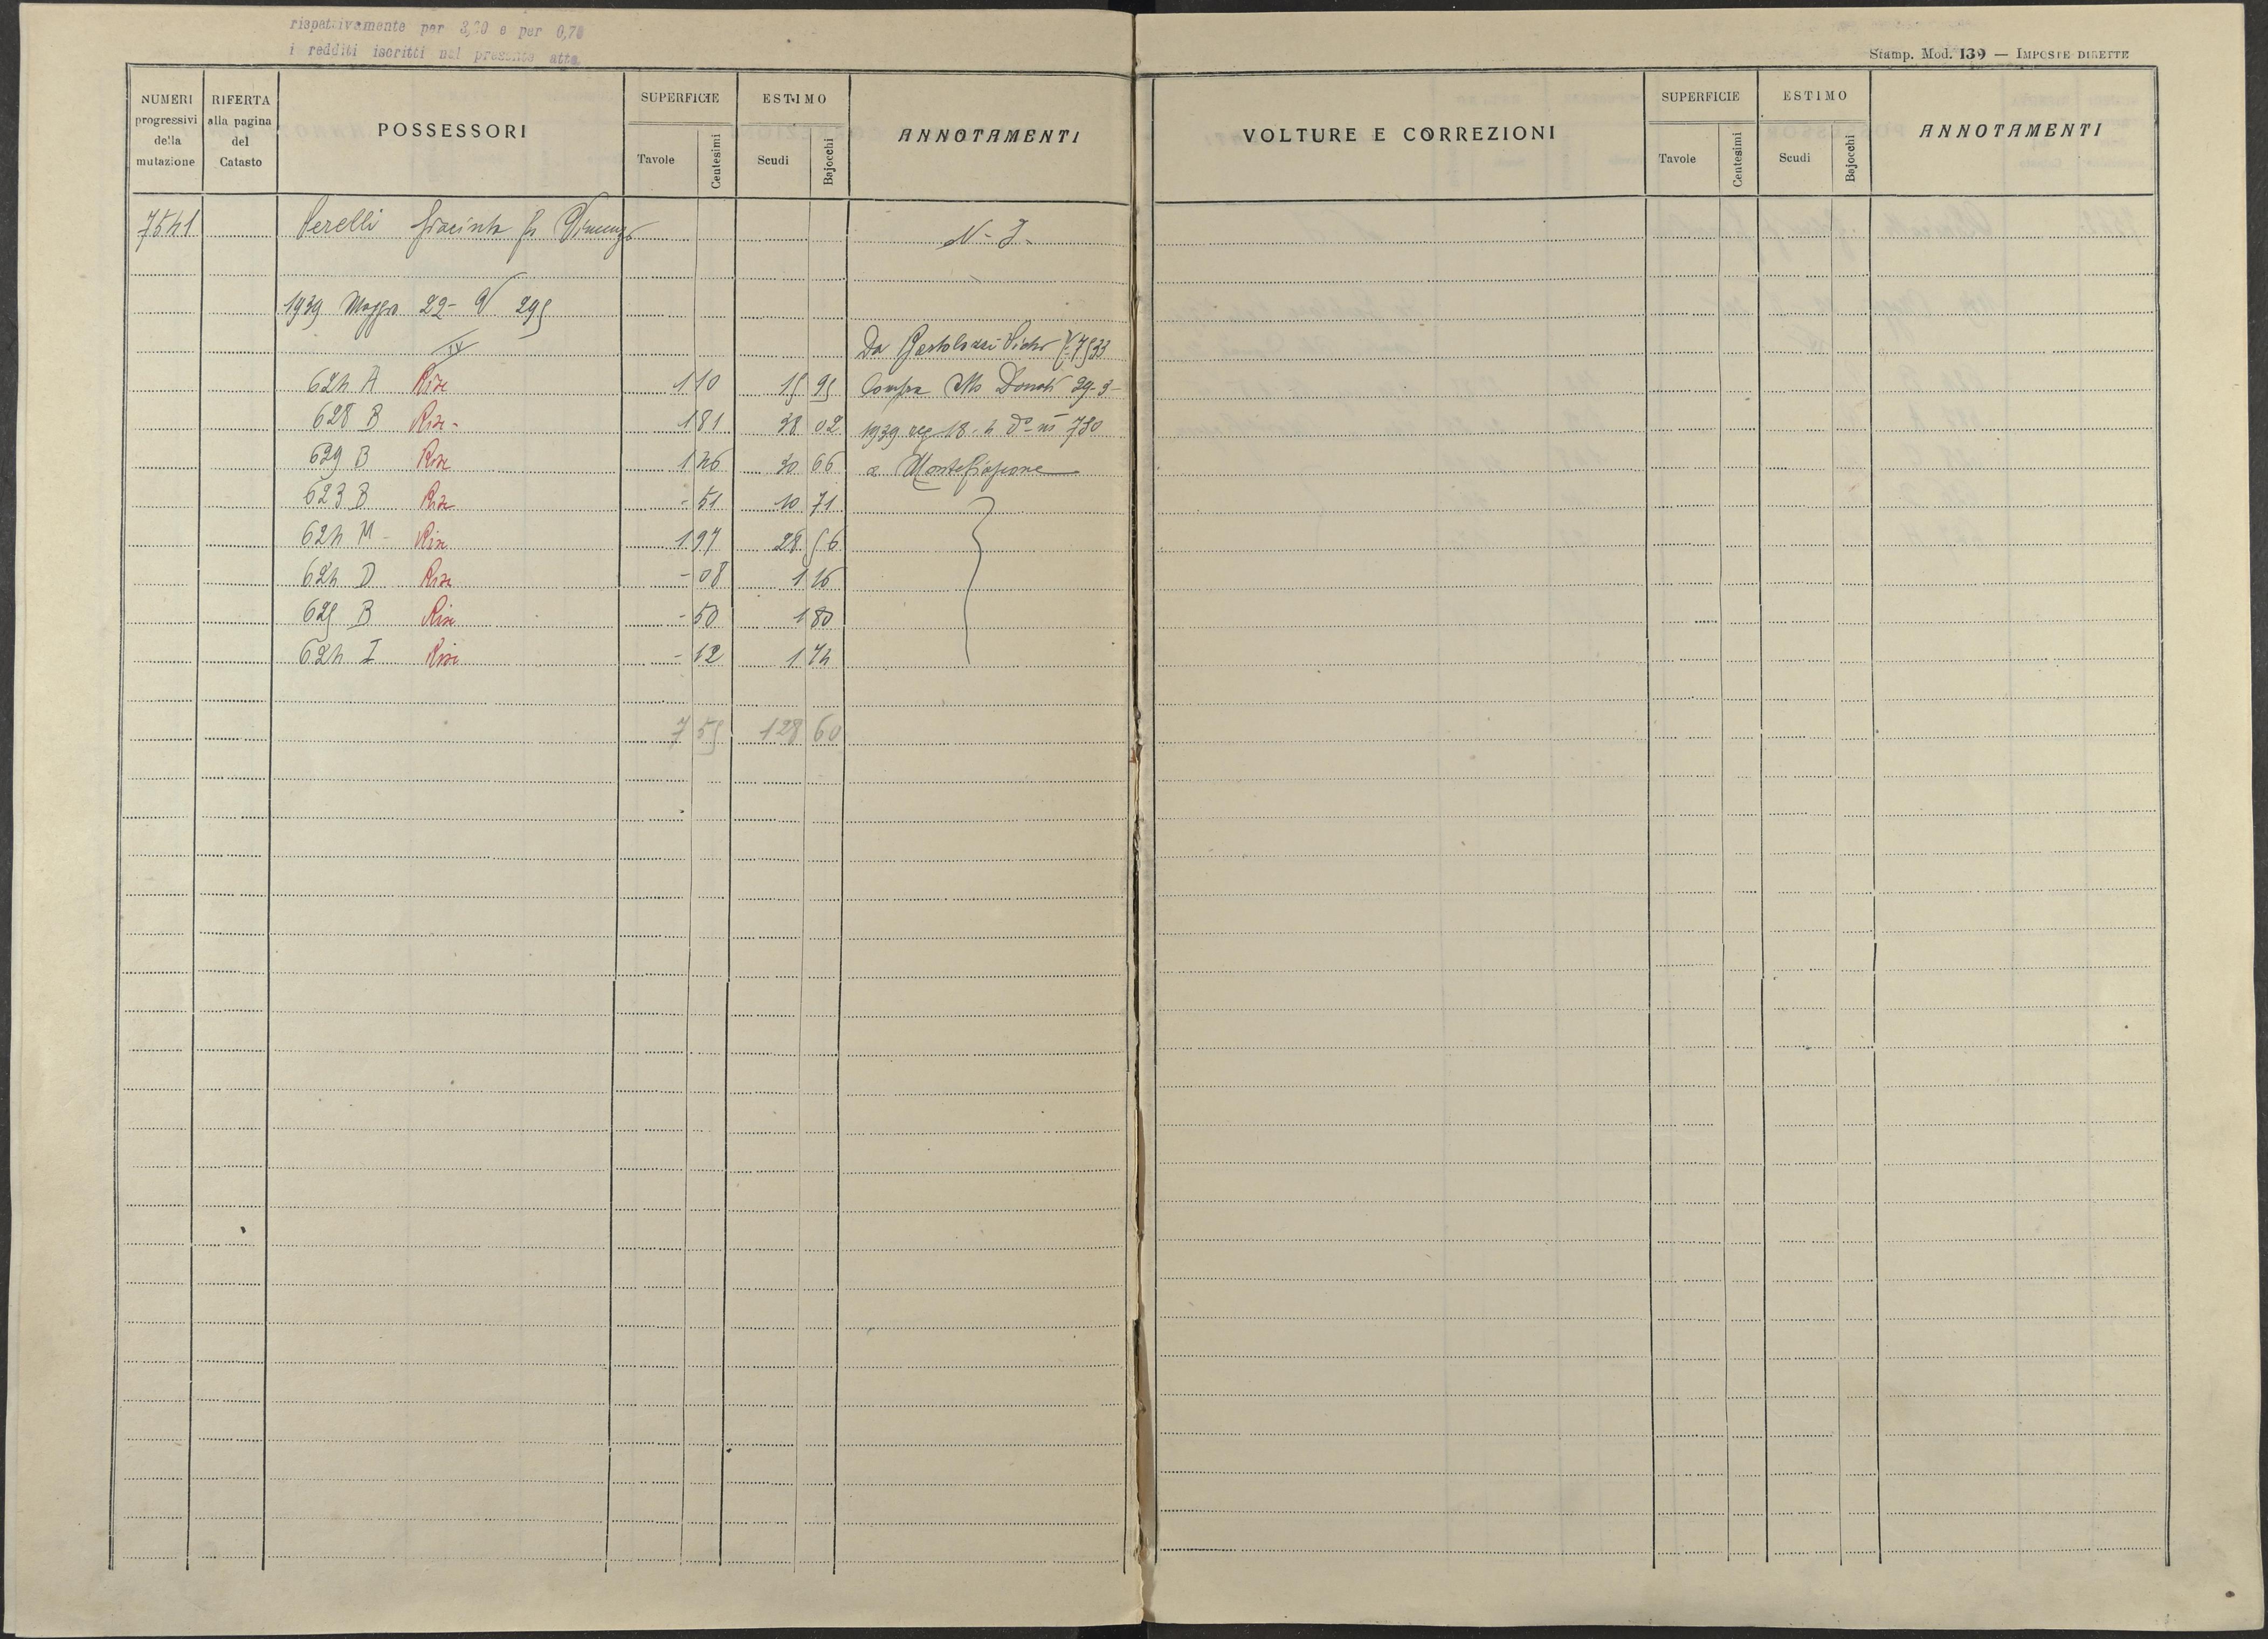 rispettivamente per 3,20 e per 0,78
i redditi iscritti nel presente atto
Stamp. Mod. 139 — IMPOSTE DIRETTE
NUMERI progressivi della mutazione
RIFERTA alla pagina del Catasto
POSSESSORI
SUPERFICIE
Tavole
Centesimi
ESTIMO
Scudi
Bajocchi
ANNOTAMENTI
VOLTURE E CORREZIONI
SUPERFICIE
Tavole
Centesimi
ESTIMO
Scudi
Bajocchi
ANNOTAMENTI
7541 Perelli Giacinta fu Vincenzo N-I-
1939 Maggio 22- V 295
IV Da Bartolozzi 7533
624 A Rise 1 10 15 95 Compra Donati 29-3-
628 B Rise- 1 81 38 02 1939 reg 18-4 do 780
629 B Rise 1 46 30 66 a Montefiascone
623 B Rise - 51 10 71
624 M- Rise 1 97 28 56
624 D Rise - 08 1 16
625 B Rise - 50 1 80
624 I Rise - 12 1 74
7 55 128 60